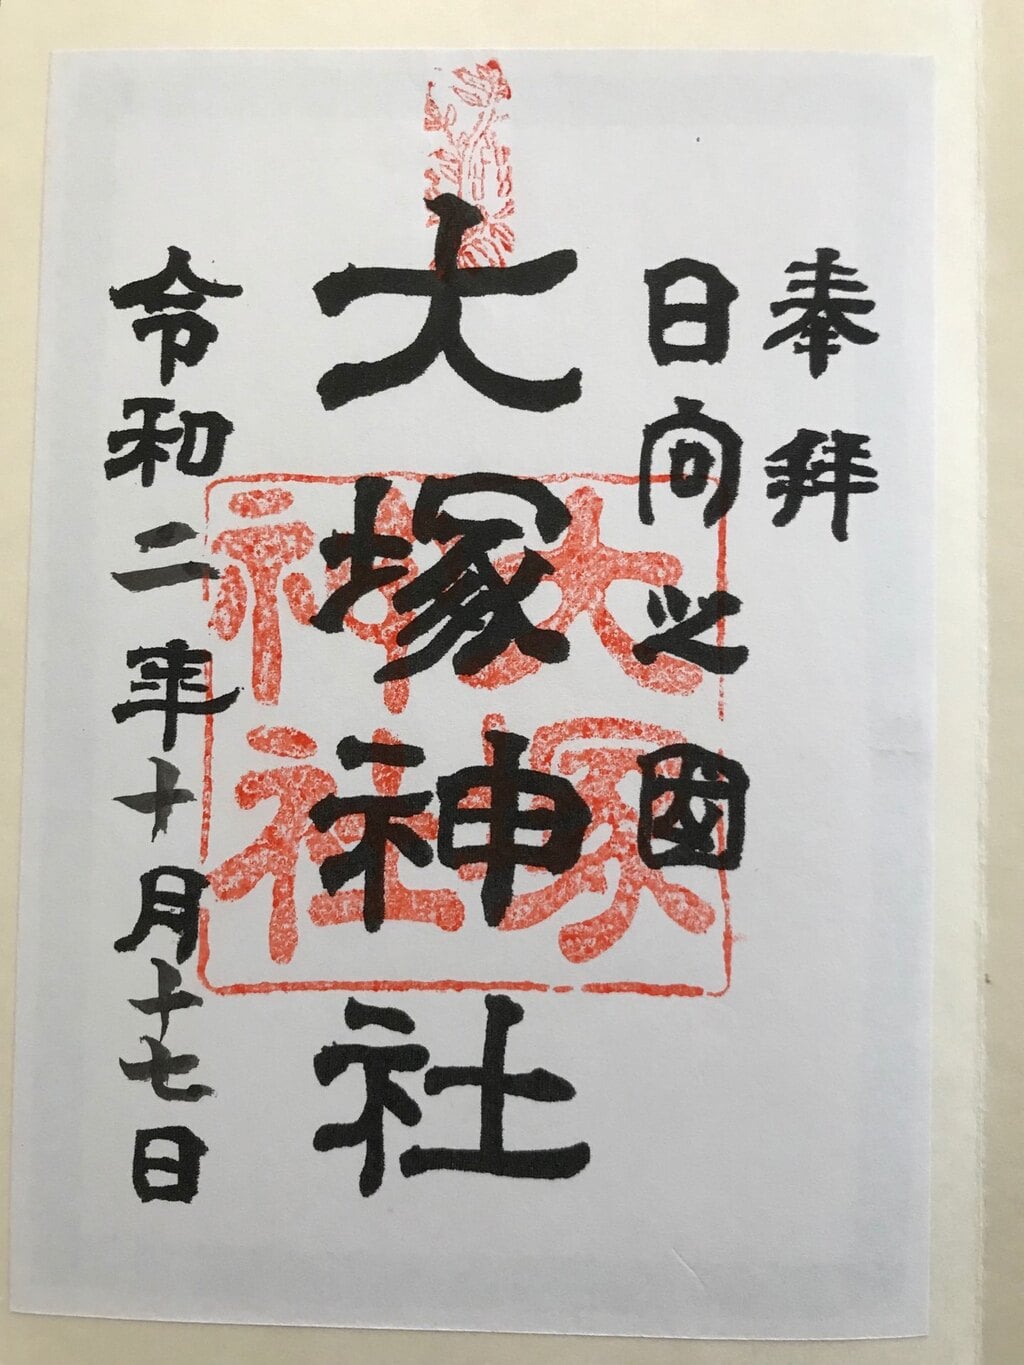 奉拝
日向之國
大塚神社
大塚
神社
令和二年十月十七日